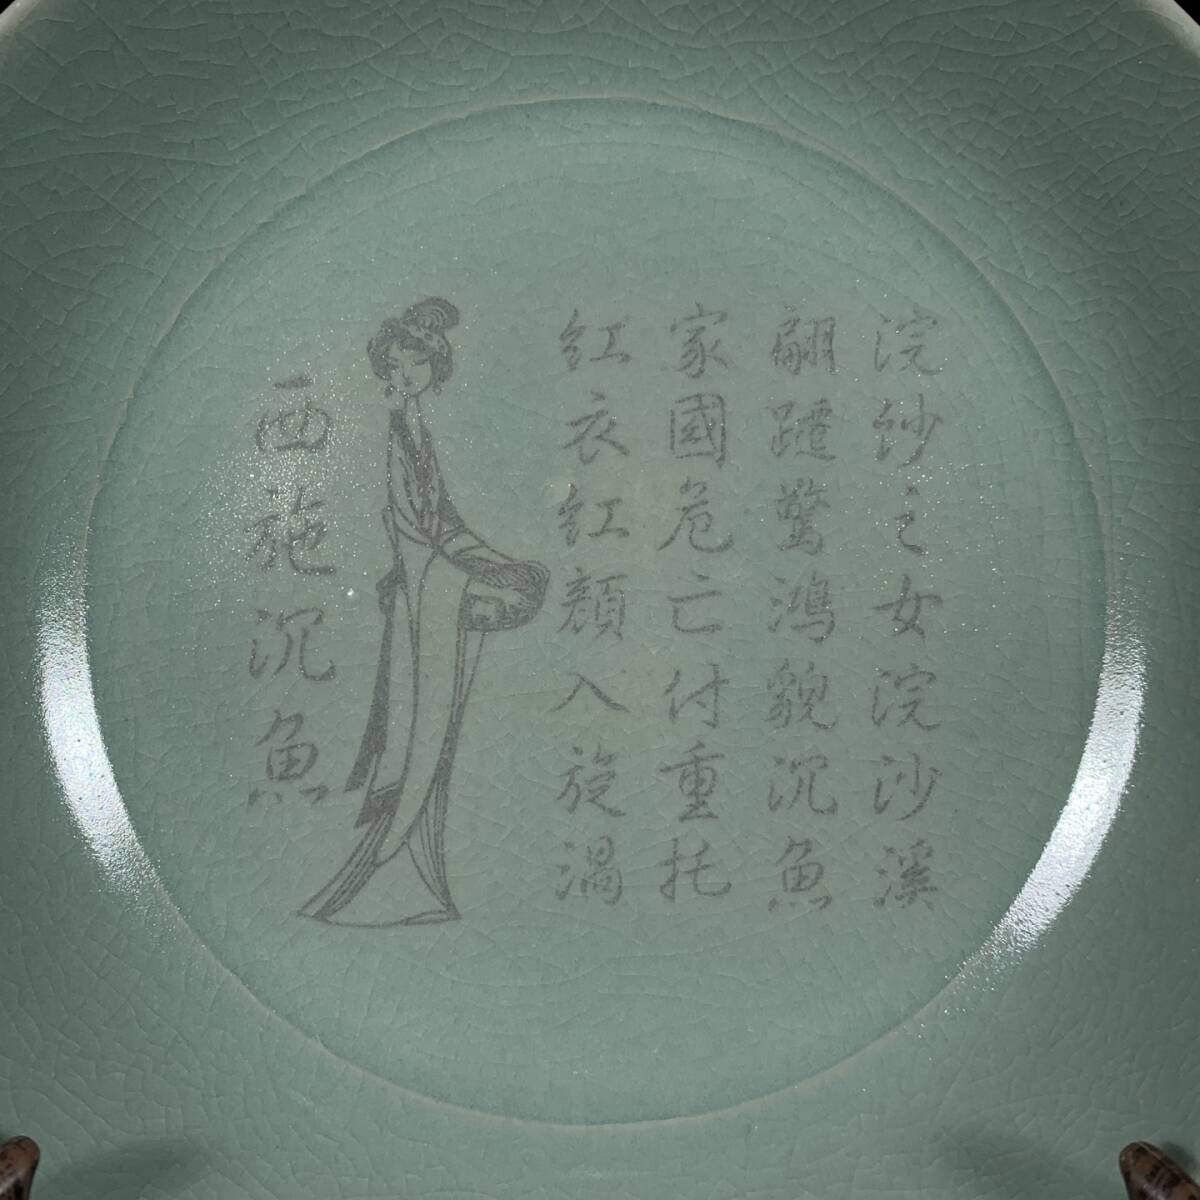 浣紗之女浣沙溪
翩躚驚鴻貌沉魚
家國危亡付重托
紅衣紅顏入旋渦
西施沉魚